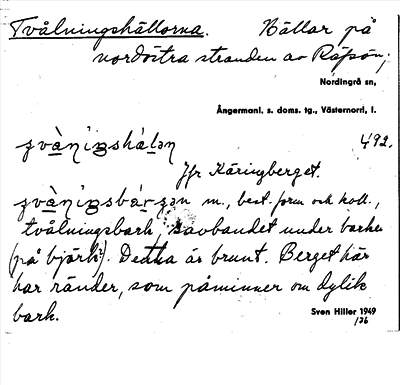 Tvålningshällorna. Hällar på
nordöstra stranden av Råpsön;
Nordingrå sn,
Ångermanl. s. doms. tg., Västernorrl. l.
492.
Jfr Käringberget.
m., best. form och koll.,
tvålningsbark, savbandet under barken
(på björk). Detta är brunt. Berget här
har ränder, som påminner om dylik
bark.
Sven Hiller 1949
/36